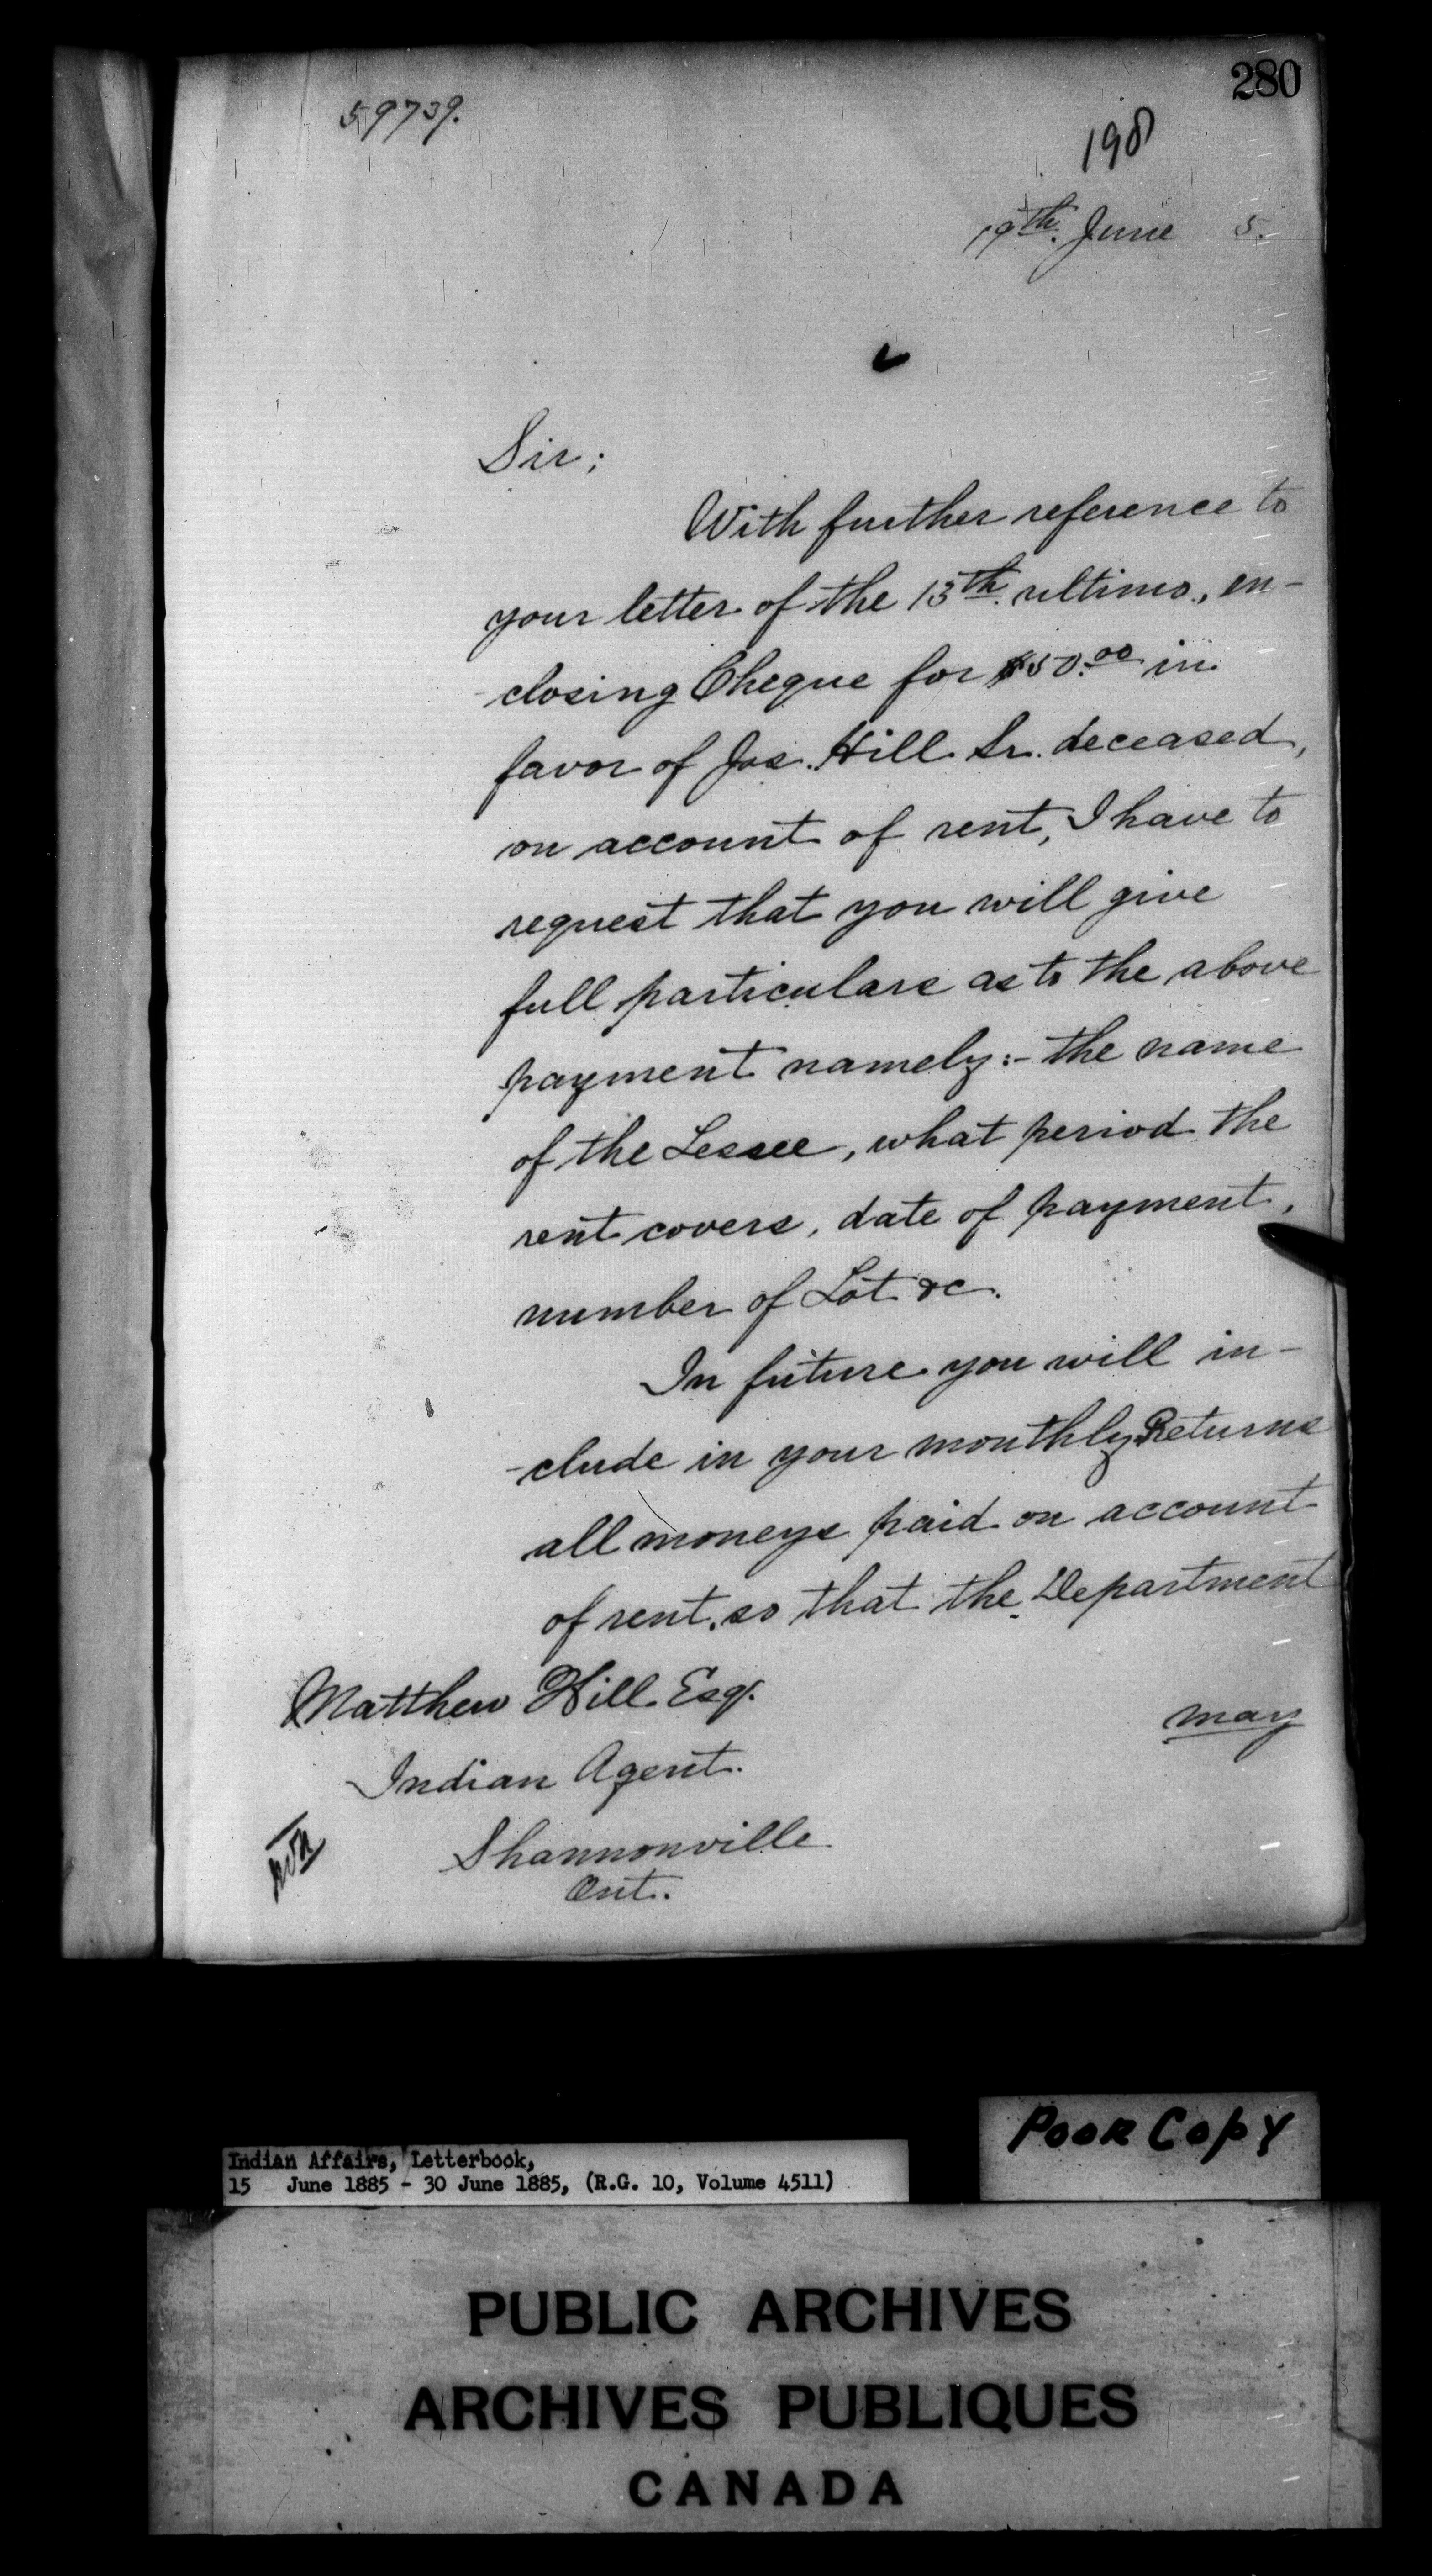 280
59739.
198
19th. June 5.
Sir;
With further reference to
your letter of the 13th. ultimo., en-
-closing Cheque for $50.00 in
favor of Jos. Hill Sr. deceased,
on account of rent, I have to
request that you will give
full particulars as to the above
payment namely:- the name
of the Lessee, what period the
rent covers, date of payment,
number of Lot &c.
In future you will in-
-clude in your monthly Returns
all moneys paid on account
of rent, so that the Department
may
Matthew Hill Esqr.
Indian Agent.
Shannonville
Ont.
Poor Copy
Indian Affairs, Letterbook,
15 June 1885 - 30 June 1885, (R.G. 10, Volume 4511)
PUBLIC ARCHIVES
ARCHIVES PUBLIQUES
CANADA